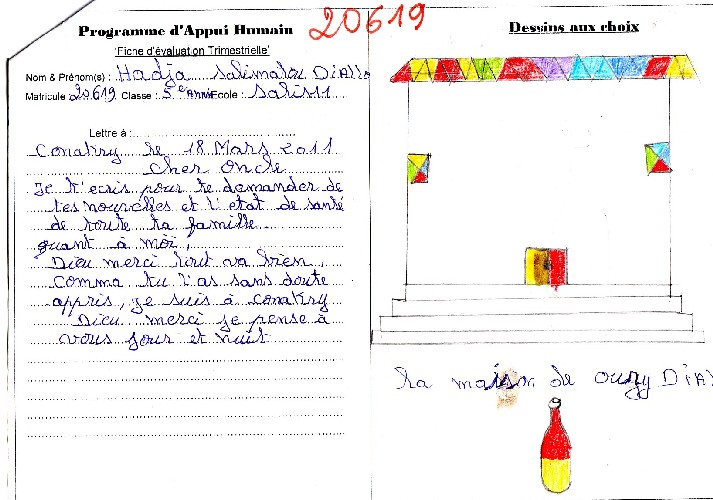 20619
Programme d'Appui Humain
'Fiche d'évaluation Trimestrielle'
Nom & Prénom(s) : Hadja Salimatou DiAllo
Matricule 20619 Classe : 5e Année Ecole :
Lettre à :
Conakry le 18 Mars 2011
Cher Oncle
Je t'ecris pour te demander de
tes nouvelles et l'etat de santé
de toute ta famille.
quant à moi,
Dieu merci tout va bien,
Comma tu l'as sans doute
appris, je suis à Conakry
Dieu merci je pense à
vous jour et nuit
Dessins aux choix
la maison de oury DiAl